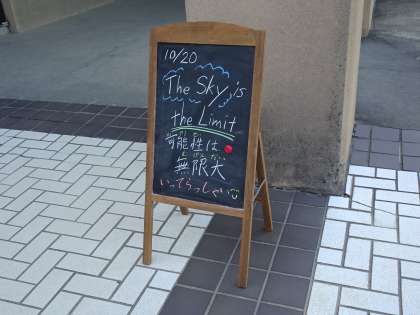 10/20
The Sky is
the Limit
可能性は
無限大
いってらっしゃい